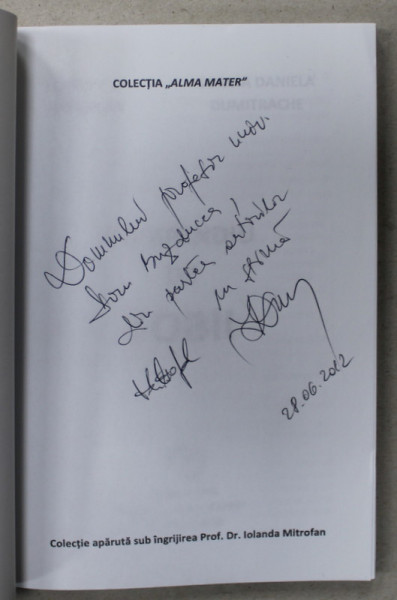 COLECȚIA „ALMA MATER”
Domnului profesor univ.
Doru Buzducea,
din partea autorilor
cu stimă
28.06.2012
Colecție apărută sub îngrijirea Prof. Dr. Iolanda Mitrofan